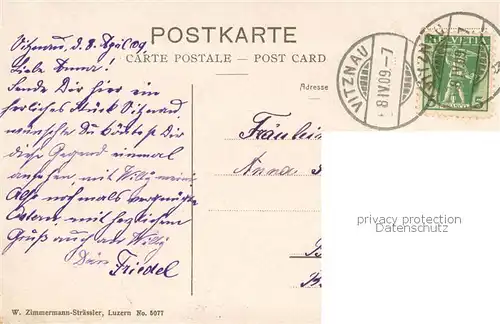 POSTKARTE
CARTE POSTALE – POST CARD
Vitznau, d. 8. April 09.
Liebe Anna!
Sende Dir hier ein
herrliches Stück Vitznau,
wünschte Du könntest Dir
diese Gegend einmal
ansehen mit Willy
Also nochmals vergnügte
Ostern mit herzlichem
Gruß auch an Willy
Dein
Friedel
Adresse
Fräulein
Anna
VITZNAU
8 IV.09.-7
HELVETIA
5
privacy protection
watermarks
W. Zimmermann-Strässler, Luzern No. 5077